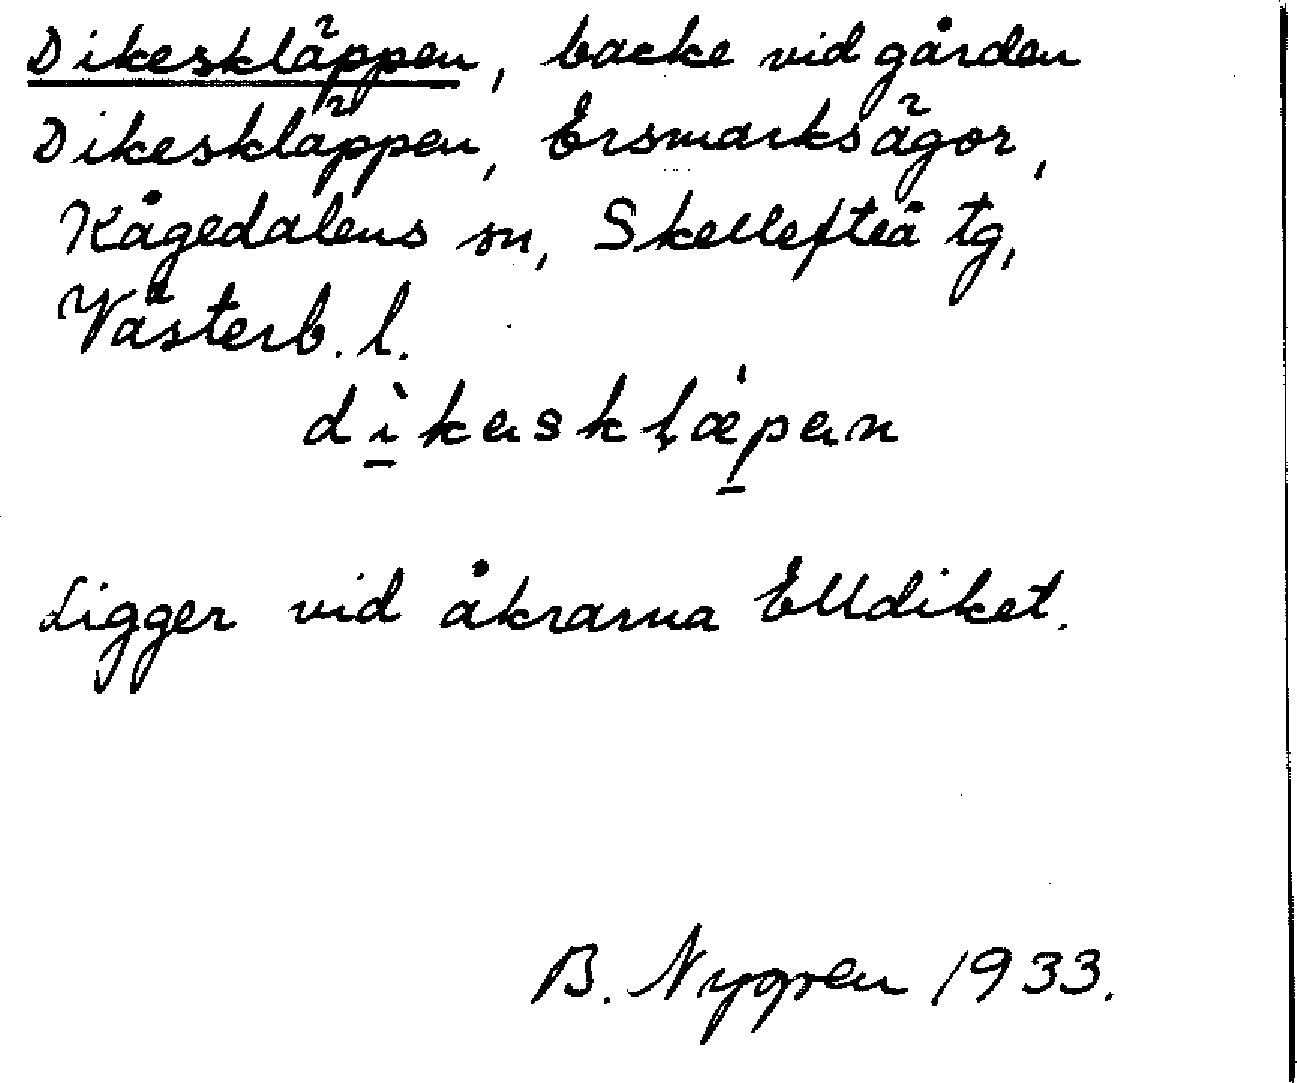 Dikeskläppen, backe vid gården
Dikeskläppen, Ersmarks ägor,
Kågedalens sn, Skellefteå tg,
Västerb. l.
dìkeskḷæpen
Ligger vid åkrarna Elldiket.
B. Nygren 1933.